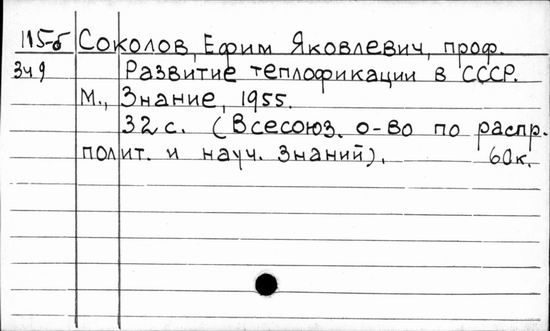 115-б Соколов, Ефим Яковлевич, проф.
349 Развитие теплофикации в СССР.
М., Знание, 1955.
32 с. (Всесоюз. о-во по распр.
полит. и науч. знаний). 60к.